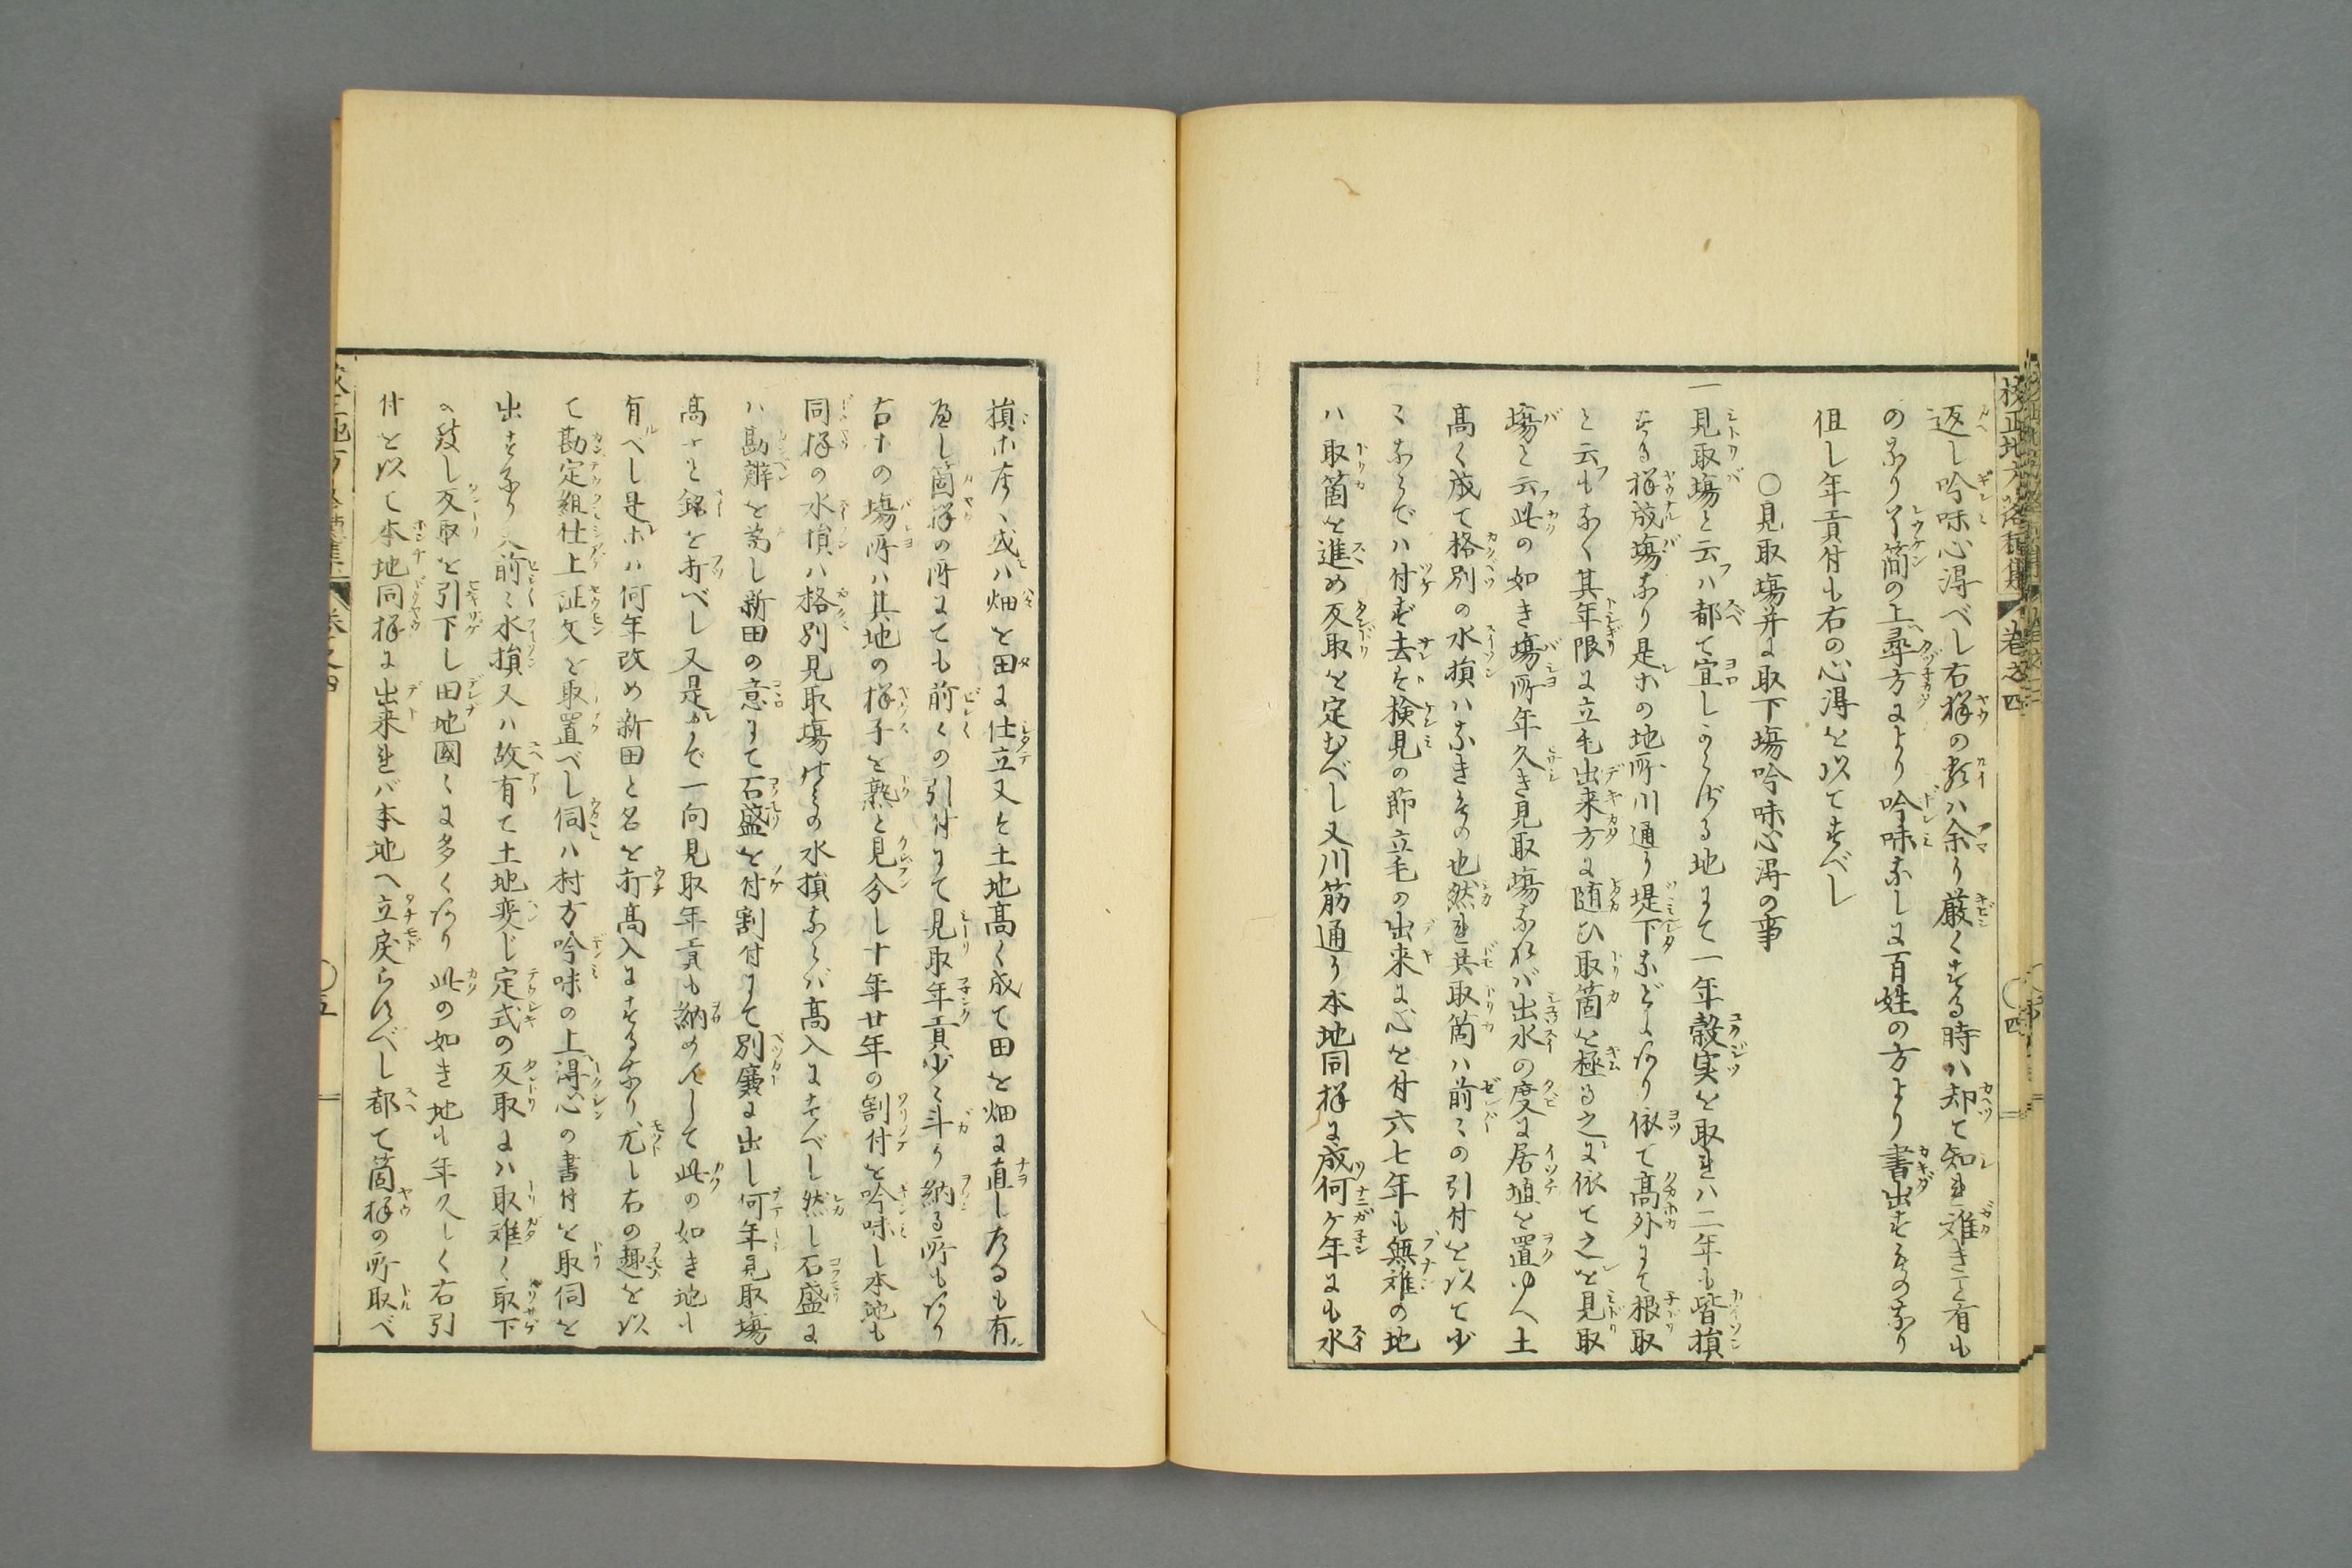 校正地方落穂集 巻之四 ○四
返し吟味心得べし右様の類ハ余り厳くする時ハ却て知れ難きこと有も
のなり了簡の上尋方により吟味なしに百姓の方より書出すものなり
但し年貢付も右の心得を以てすべし
○見取場并に取下場吟味心得の事
一見取場と云ハ都て宜しからざる地にて一年穀実を取れハ二年も皆損
する様成場なり是等の地所川通り堤下などにあり依て高外にて根取
と云もなく其年限に立毛出来方に随ひ取箇を極る之に依て之を見取
場と云此の如き場所年久き見取場なれバ出水の度に居埴を置ゆへ土
高く成て格別の水損ハなきもの也然れ共取箇ハ前々の引付を以て少
々ならでハ付ず去は検見の節立毛の出来に心を付六七年も無難の地
ハ取箇を進め反取を定むべし又川筋通り本地同様に成何ヶ年にも水
損等なく或ハ畑を田に仕立又は土地高く成て田を畑に直したるも有
べし箇様の所にても前々の引付にて見取年貢少々斗り納る所もあり
右等の場所ハ其地の様子を熟と見分し十年廿年の割付を吟味し本地も
同様の水損ハ格別見取場計りの水損ならバ高入にすべし然し石盛に
ハ勘辨を為し新田の意にて石盛を付割付にて別廉に出し何年見取場
高入と銘を打べし又是まで一向見取年貢も納めずして此の如き地も
有べし是等ハ何年改め新田と名を打高入にするなり尤し右の趣を以
て勘定組仕上証文を取置べし伺ハ村方吟味の上得心の書付を取伺を
出すなり又前々水損又ハ故有て土地変じ定式の反取にハ取難く取下
に致し反取を引下し田地國々に多くあり此の如き地も年久しく右引
付を以て本地同様に出来れバ本地へ立戻らすべし都て箇様の所取べ
巻之四 ○五